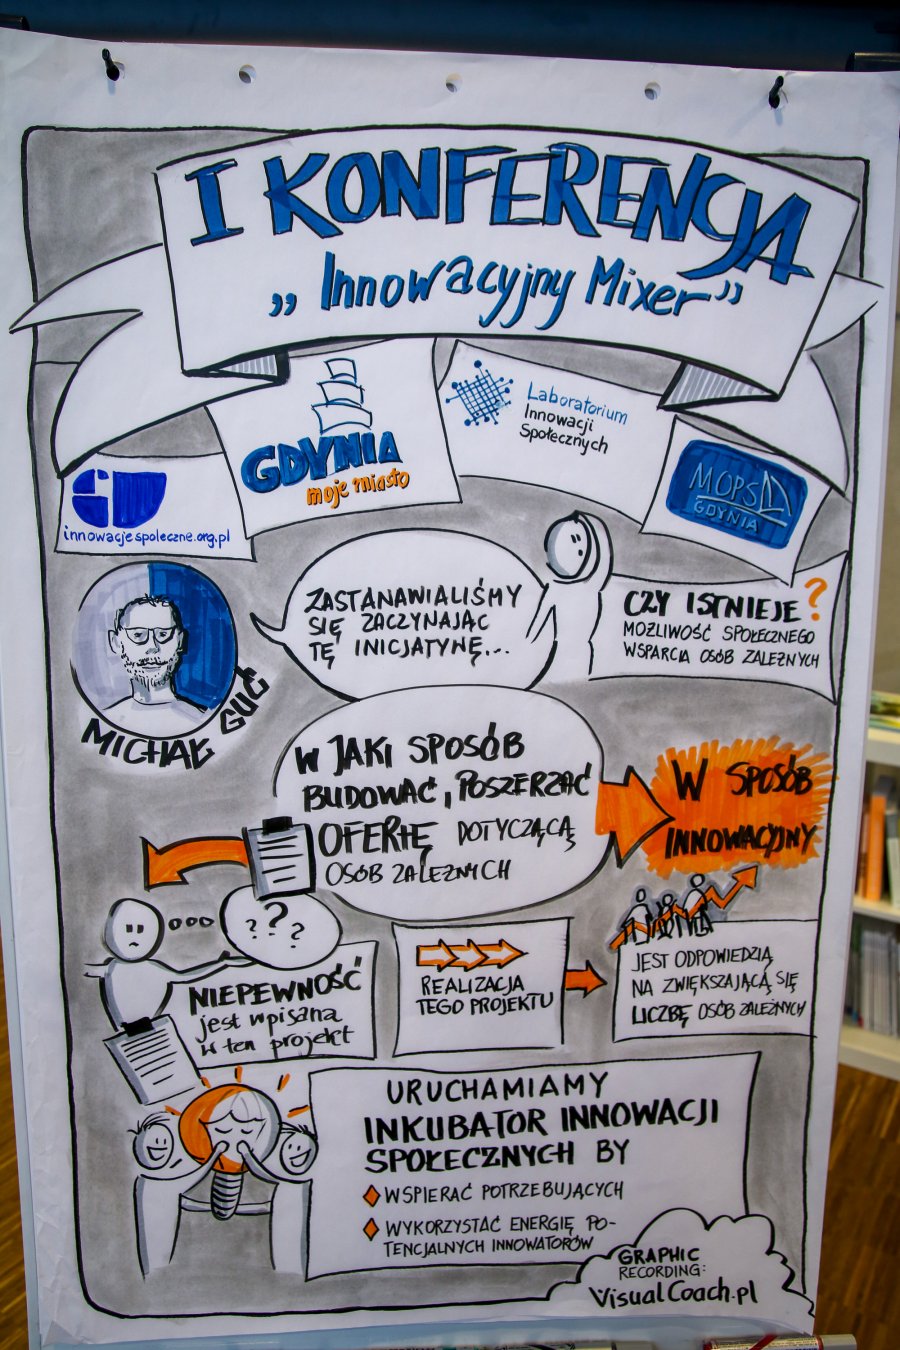 I KONFERENCJA
„Innowacyjny Mixer”
innowacjespoleczne.org.pl
GDYNIA
moje miasto
Laboratorium
Innowacji
Społecznych
MOPS
GDYNIA
MICHAŁ GUĆ
ZASTANAWIALIŚMY
SIĘ ZACZYNAJĄC
TĘ INICJATYNĘ...
CZY ISTNIEJE?
MOŻLIWOŚĆ SPOŁECZNEGO
WSPARCIA OSÓB ZALEŻNYCH
W JAKI SPOSÓB
BUDOWAĆ, POSZERZAĆ
OFERTĘ DOTYCZĄCĄ
OSÓB ZALEŻNYCH
W SPOSÓB
INNOWACYJNY
???
NIEPEWNOŚĆ
jest wpisana
w ten projekt
REALIZACJA
TEGO PROJEKTU
JEST ODPOWIEDZIĄ
NA ZWIĘKSZAJĄCĄ SIĘ
LICZBĘ OSÓB ZALEŻNYCH
URUCHAMIAMY
INKUBATOR INNOWACJI
SPOŁECZNYCH BY
WSPIERAĆ POTRZEBUJĄCYCH
WYKORZYSTAĆ ENERGIĘ PO-
TENCJALNYCH INNOWATORÓW
GRAPHIC
RECORDING:
VisualCoach.pl